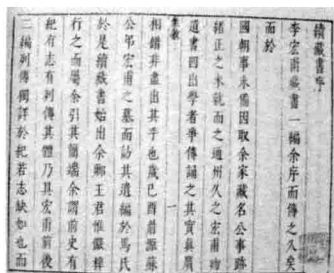 續藏書序
李宏甫藏書一編余序而傳之久矣
而於
國朝事未備因取余家藏名公事跡
緒正之未就而之通州久之宏甫歿
遺書四出學者爭傳誦之其實真贋
一
相錯非盡出其手也歲己酉眉源蘇
公弔宏甫之墓而訪其遺編於馬氏
於是續藏書始出余鄉王君惟儼梓
行之而屬余引其簡端余謂前史有
紀有志有列傳其體乃具宏甫前後
二編列傳獨詳於紀若志缺如也而